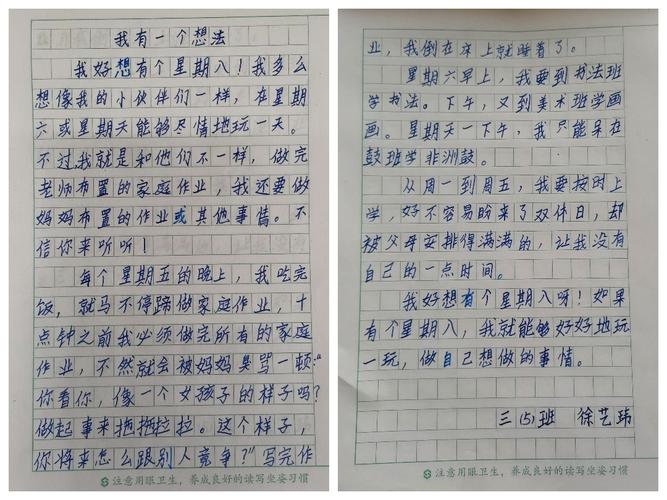 我有一个想法
我好想有个星期八！我多么
想像我的小伙伴们一样，在星期
六或星期天能够尽情地玩一天。
不过，我就是和他们不一样，做完
老师布置的家庭作业，我还要做
妈妈布置的作业或其他事情。不
信你来听听！
每个星期五的晚上，我吃完
饭，就马不停蹄做家庭作业，十
点钟之前我必须做完所有的家庭
作业，不然就会被妈妈臭骂一顿：“
你看你，像一个女孩子的样子吗？
做起事来拖拖拉拉。这个样子，
你将来怎么跟别人竞争？”写完作
注意用眼卫生，养成良好的读写坐姿习惯
业，我倒在床上就睡着了。
星期六早上，我要到书法班
学书法。下午，又到美术班学画
画。星期天一下午，我只能呆在
鼓班学非洲鼓。
从周一到周五，我要按时上
学，好不容易盼来了双休日，却
被父母安排得满满的，让我没有
自己的一点时间。
我好想有个星期八呀！如果
有个星期八，我就能够好好地玩
一玩，做自己想做的事情。
三（5）班 徐艺玮
注意用眼卫生，养成良好的读写坐姿习惯